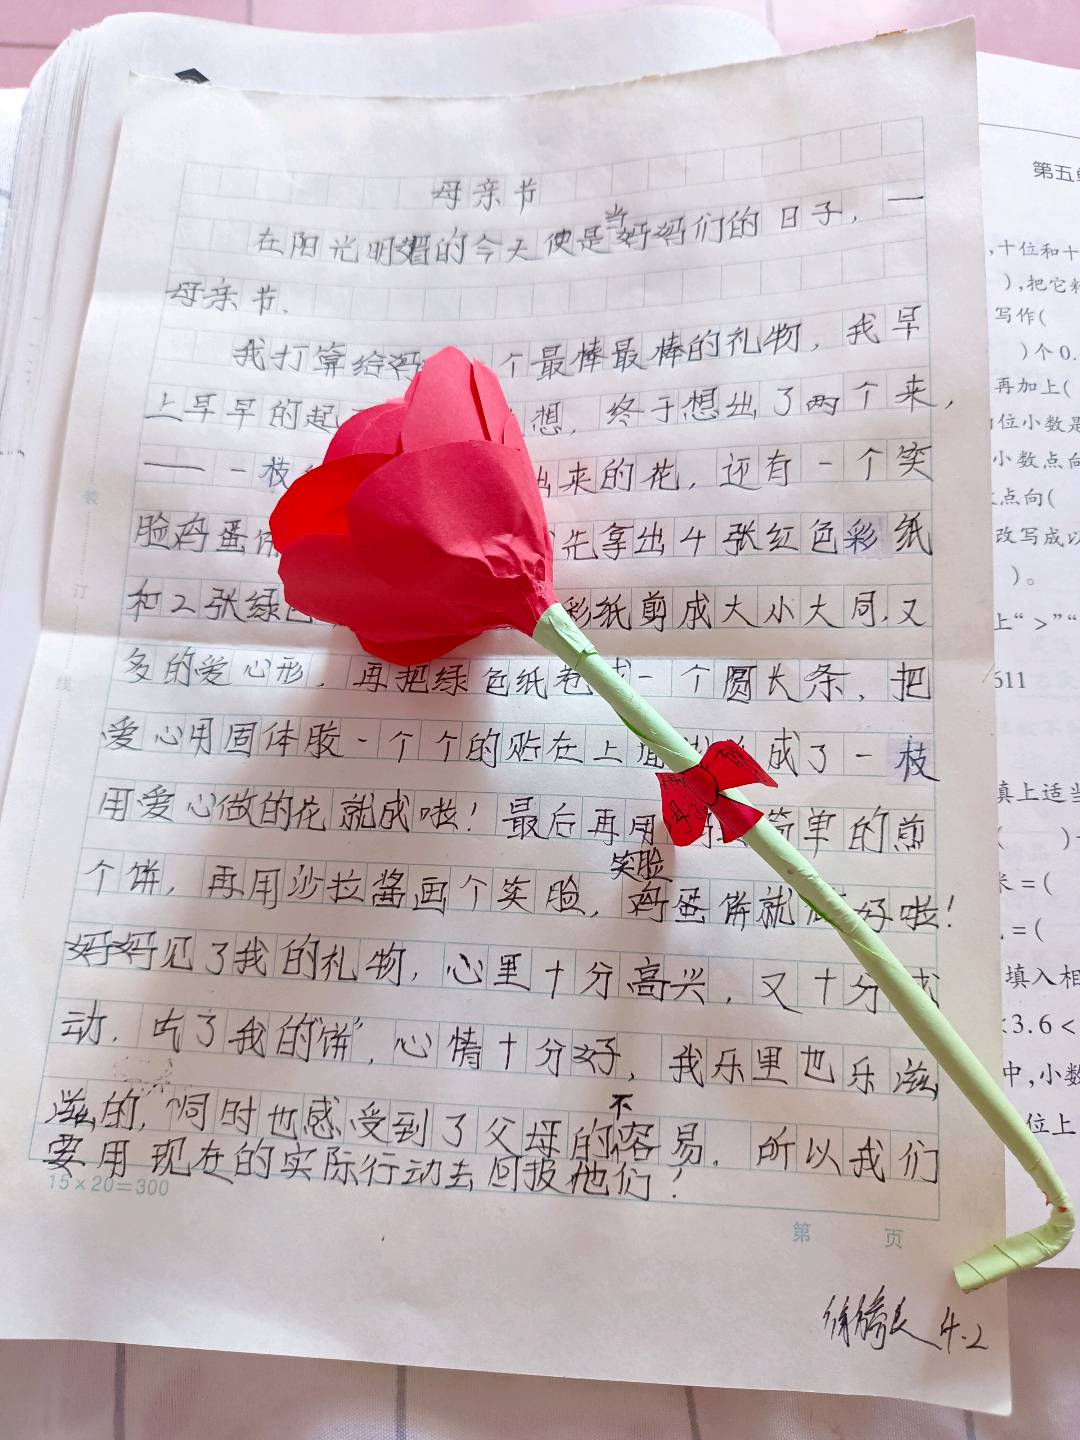 母亲节
在阳光明媚的今天便是当妈妈们的日子，一
母亲节.
我打算给妈 个最棒最棒的礼物，我早
上早早的起 想，终于想出了两个来，
—— 一枝 出来的花，还有一个笑
脸鸡蛋饼 先拿出4张红色彩纸
和2张绿色 彩纸剪成大小大同，又
多的爱心形，再把绿色纸卷成一个圆长条，把
爱心用固体胶一个个的贴在上面 成了一枝
用爱心做的花就成啦！最后再用 简单的煎
个饼，再用沙拉酱画个笑脸，笑脸鸡蛋饼就 好啦！
妈妈见了我的礼物，心里十分高兴，又十分感
动．吃了我的“饼”，心情十分好，我乐里也乐滋
滋的，同时也感受到了父母的不容易．所以我们
要用现在的实际行动去回报他们！
15×20=300
第 页
4.2
装
订
线
第五单
,十位和十
),把它
写作(
)个0.
再加上(
位小数是
小数点向
点向(
改写成以
)。
上“>”“
611
填上适当
( )
米=(
=(
填入相
3.6<
中,小数
位上